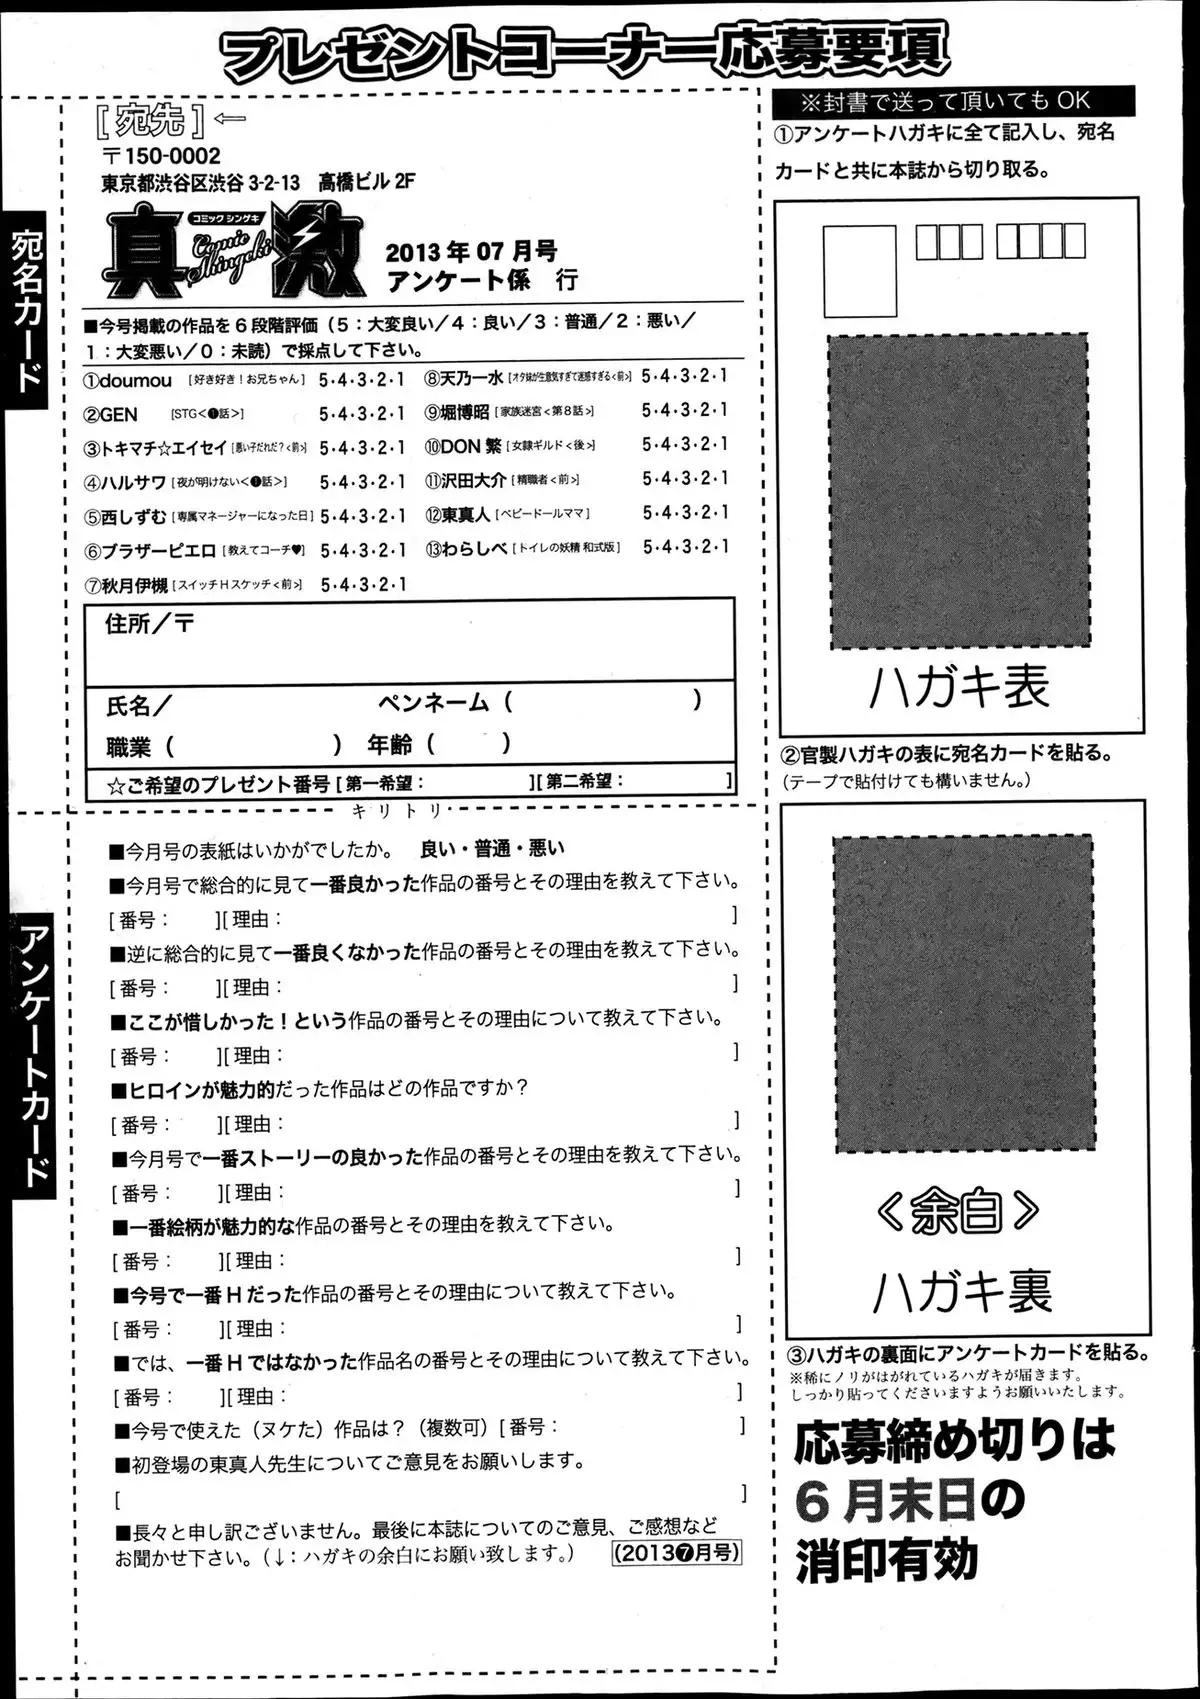 プレゼントコーナー応募要項
[宛先]←
〒150-0002
東京都渋谷区渋谷 3-2-13　高橋ビル 2F
真激
コミック シンゲキ
Comic Shingeki
2013 年 07 月号
アンケート係　行
■今号掲載の作品を 6 段階評価（5：大変良い／4：良い／3：普通／2：悪い／
1：大変悪い／0：未読）で採点して下さい。
①doumou [好き好き！お兄ちゃん] 5・4・3・2・1
②GEN [STG<❶話>] 5・4・3・2・1
③トキマチ☆エイセイ [悪い子だれだ？<前>] 5・4・3・2・1
④ハルサワ [夜が明けない<❶話>] 5・4・3・2・1
⑤西しずむ [専属マネージャーになった日] 5・4・3・2・1
⑥ブラザーピエロ [教えてコーチ♥] 5・4・3・2・1
⑦秋月伊槻 [スイッチHスケッチ<前>] 5・4・3・2・1
⑧天乃一水 [オタ妹が生意気すぎて迷惑すぎる<前>] 5・4・3・2・1
⑨堀博昭 [家族迷宮<第8話>] 5・4・3・2・1
⑩DON 繁 [女隷ギルド<後>] 5・4・3・2・1
⑪沢田大介 [精職者<前>] 5・4・3・2・1
⑫東真人 [ベビードールママ] 5・4・3・2・1
⑬わらしべ [トイレの妖精 和式版] 5・4・3・2・1
住所／〒
氏名／　ペンネーム（　）
職業（　）　年齢（　）
☆ご希望のプレゼント番号 [第一希望：　][第二希望：　]
キリトリ
宛名カード
アンケートカード
■今月号の表紙はいかがでしたか。　良い・普通・悪い
■今月号で総合的に見て一番良かった作品の番号とその理由を教えて下さい。
[番号：　][理由：　]
■逆に総合的に見て一番良くなかった作品の番号とその理由を教えて下さい。
[番号：　][理由：　]
■ここが惜しかった！という作品の番号とその理由について教えて下さい。
[番号：　][理由：　]
■ヒロインが魅力的だった作品はどの作品ですか？
[番号：　][理由：　]
■今月号で一番ストーリーの良かった作品の番号とその理由を教えて下さい。
[番号：　][理由：　]
■一番絵柄が魅力的な作品の番号とその理由を教えて下さい。
[番号：　][理由：　]
■今号で一番 H だった作品の番号とその理由について教えて下さい。
[番号：　][理由：　]
■では、一番 H ではなかった作品名の番号とその理由について教えて下さい。
[番号：　][理由：　]
■今号で使えた（ヌケた）作品は？（複数可）[番号：　]
■初登場の東真人先生についてご意見をお願いします。
[　]
■長々と申し訳ございません。最後に本誌についてのご意見、ご感想など
お聞かせ下さい。（↓：ハガキの余白にお願い致します。）　(2013❼月号)
※封書で送って頂いても OK
①アンケートハガキに全て記入し、宛名
カードと共に本誌から切り取る。
ハガキ表
②官製ハガキの表に宛名カードを貼る。
（テープで貼付けても構いません。）
＜余白＞
ハガキ裏
③ハガキの裏面にアンケートカードを貼る。
※稀にノリがはがれているハガキが届きます。
しっかり貼ってくださいますようお願いいたします。
応募締め切りは
6 月末日の
消印有効